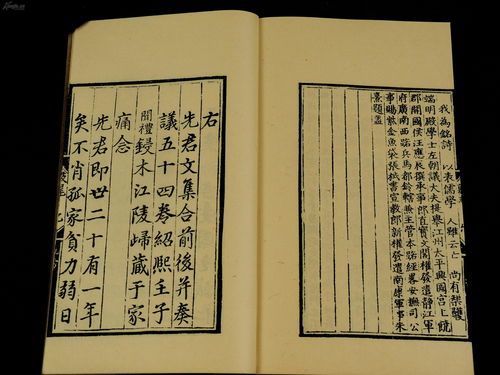 我為銘詩 以表儒學 人雖云亡 尚有榘矱
端明殿學士左朝議大夫提舉江州太平興國宮上饒
郡開國侯汪應辰撰承事郎直寶文閣權發遣靜江軍
府廣南西路兵馬都鈐轄兼主管本路經畧安撫司公
事賜紫金魚袋張栻書宣教郎新權發遣南康軍事朱
熹題蓋
右
先君文集合前後并奏
議五十四卷紹熙壬子
開禮鋟木江陵歸藏于家
痛念
先君即世二十有一年
矣不肖孤家貧力弱日